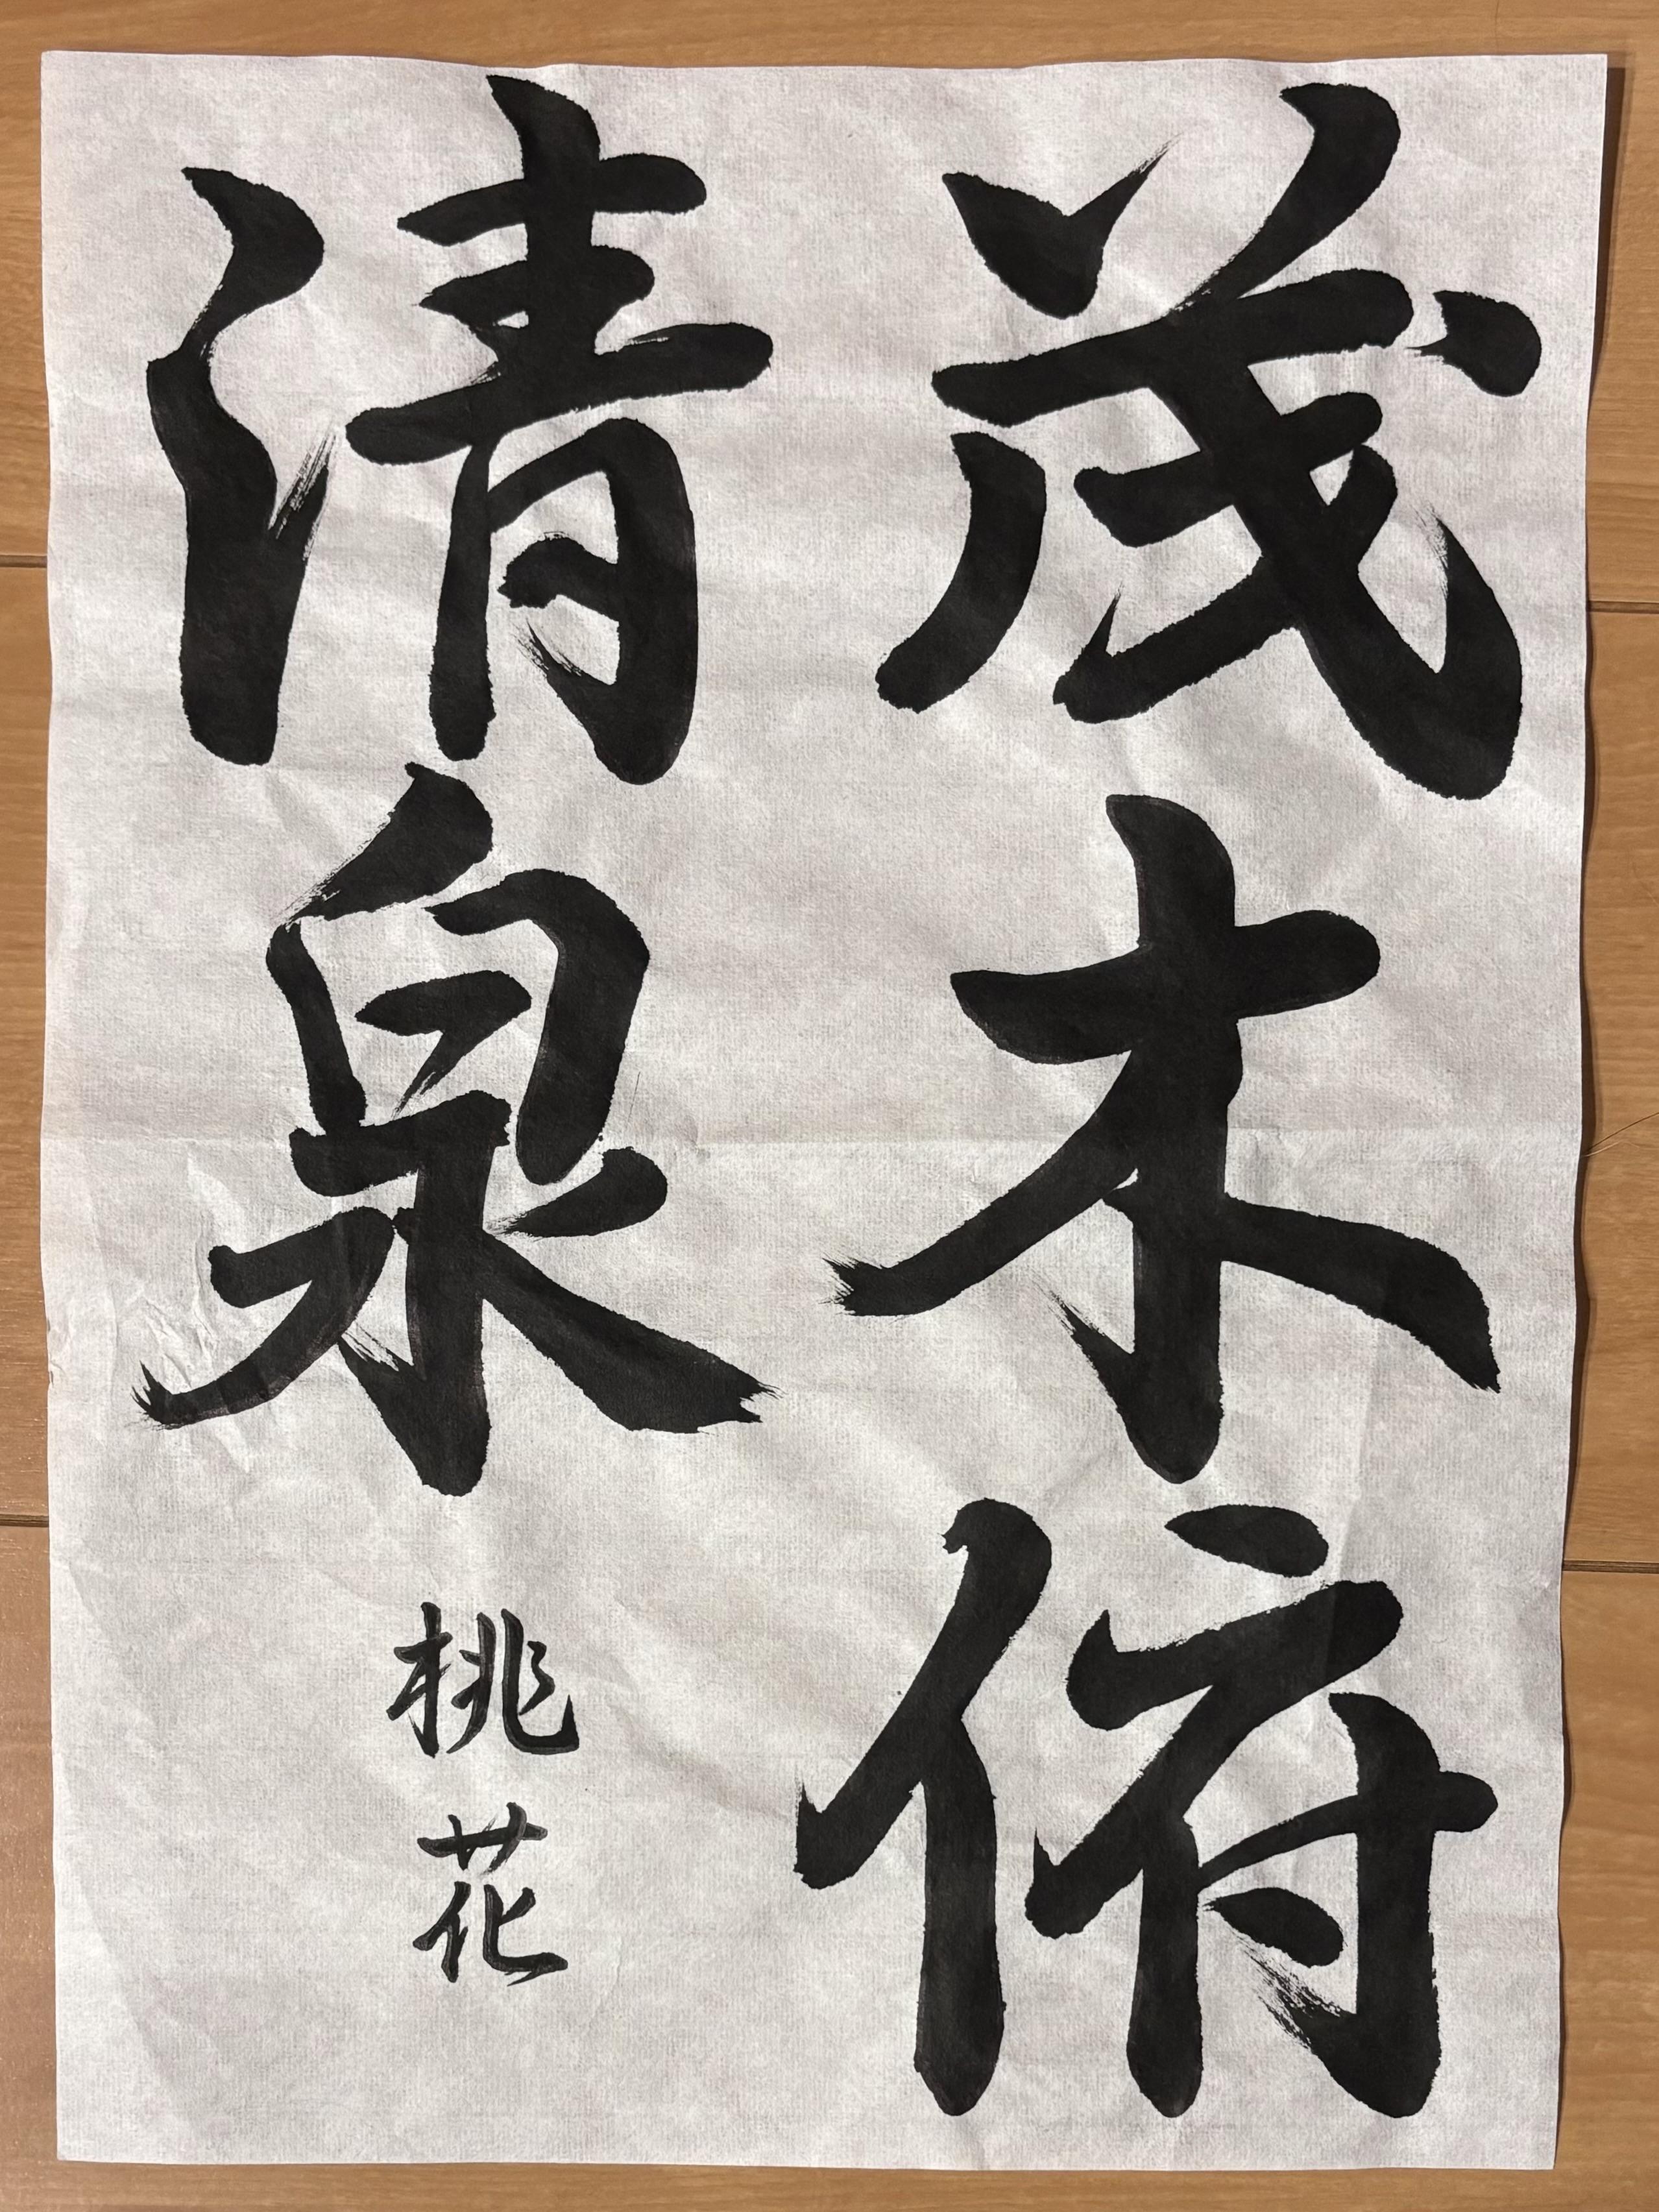 茂木俯
清泉
桃花